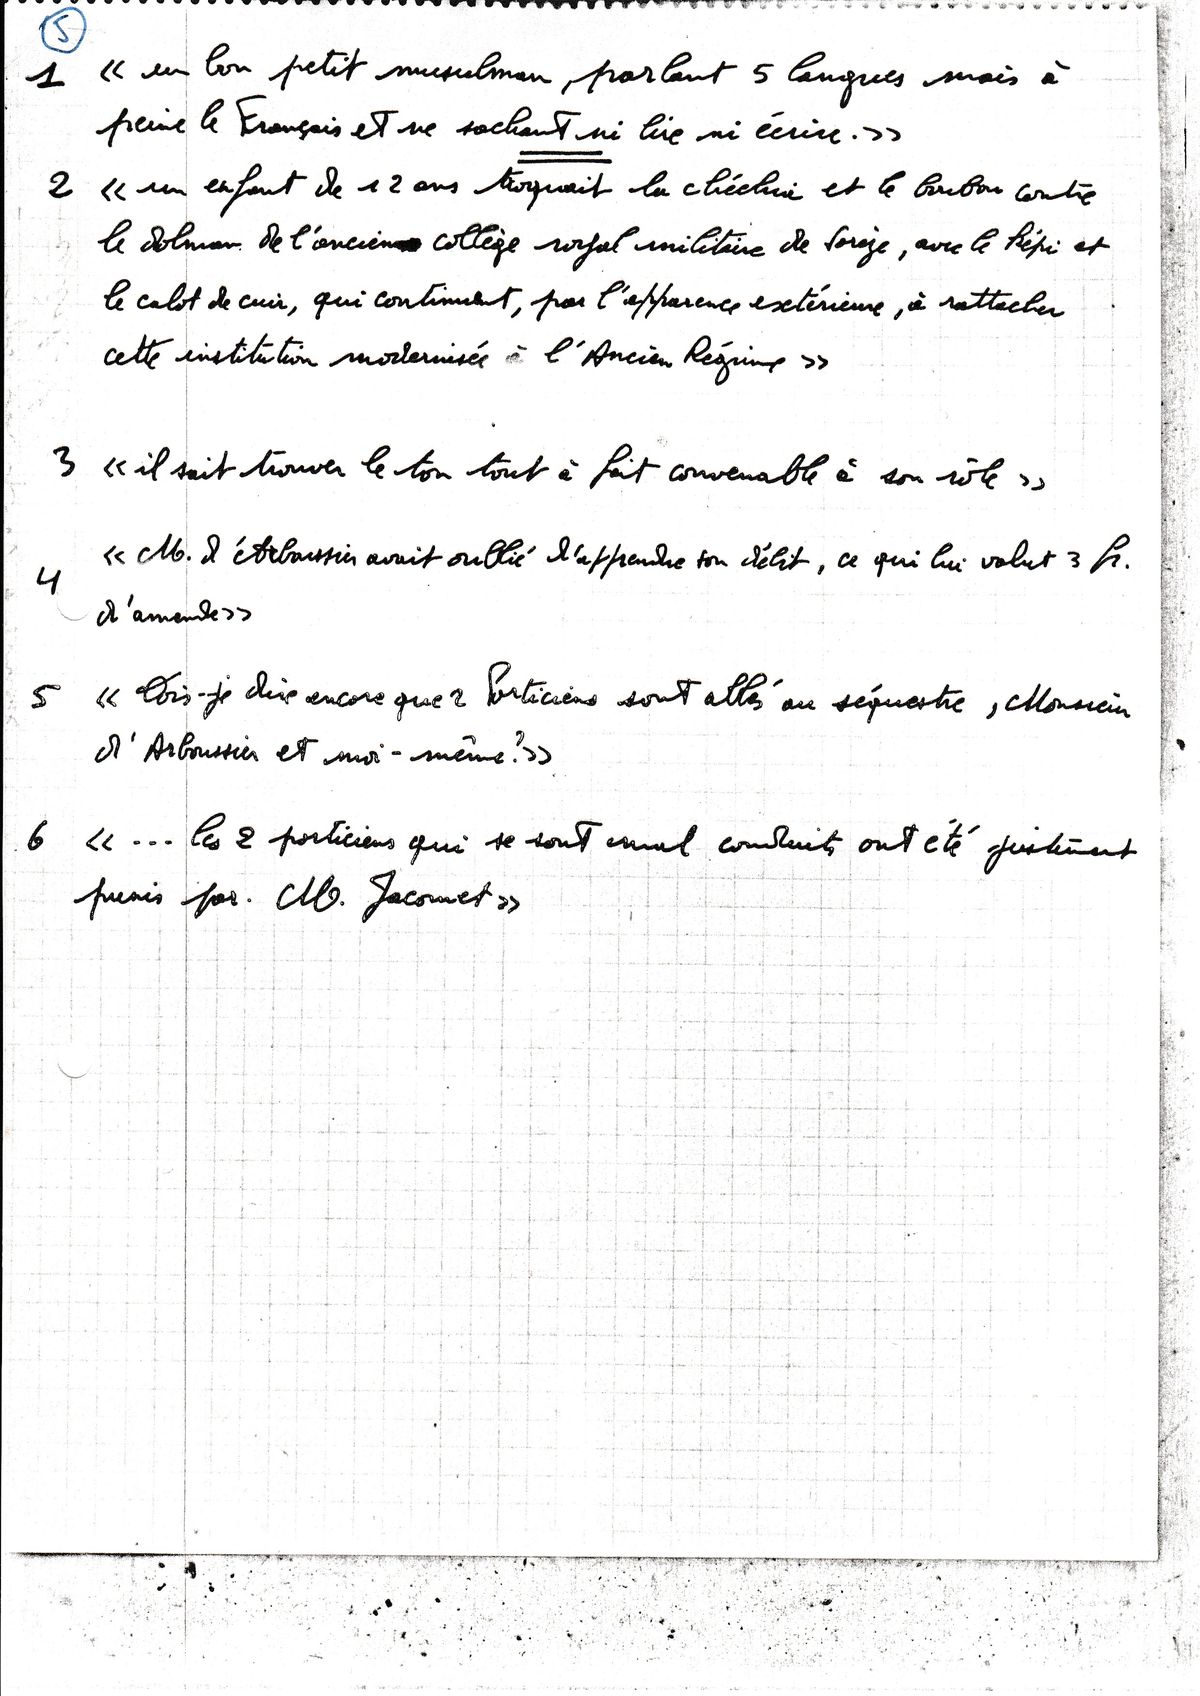 5
1 « en bon petit musulman, parlant 5 langues mais à
peine le Français et ne sachant ni lire ni écrire. »
2 « un enfant de 12 ans troquait la chéchia et le boubou contre
le dolman de l'ancien collège royal militaire de Sorèze, avec le képi et
le calot de cuir, qui continuent, par l'apparence extérieure, à rattacher
cette institution modernisée à l'Ancien Régime »
3 « il sait trouver le ton tout à fait convenable à son rôle »
« M. d'Arboussier avait oublié d'apprendre son débit, ce qui lui valut 3 fr.
4
d'amende »
5 « Dois-je dire encore que 2 Porticiens sont allés au séquestre, Monsieur
d'Arboussier et moi-même? »
6 « ... les 2 porticiens qui se sont mal conduits ont été justement
punis par. M. Jacomet »